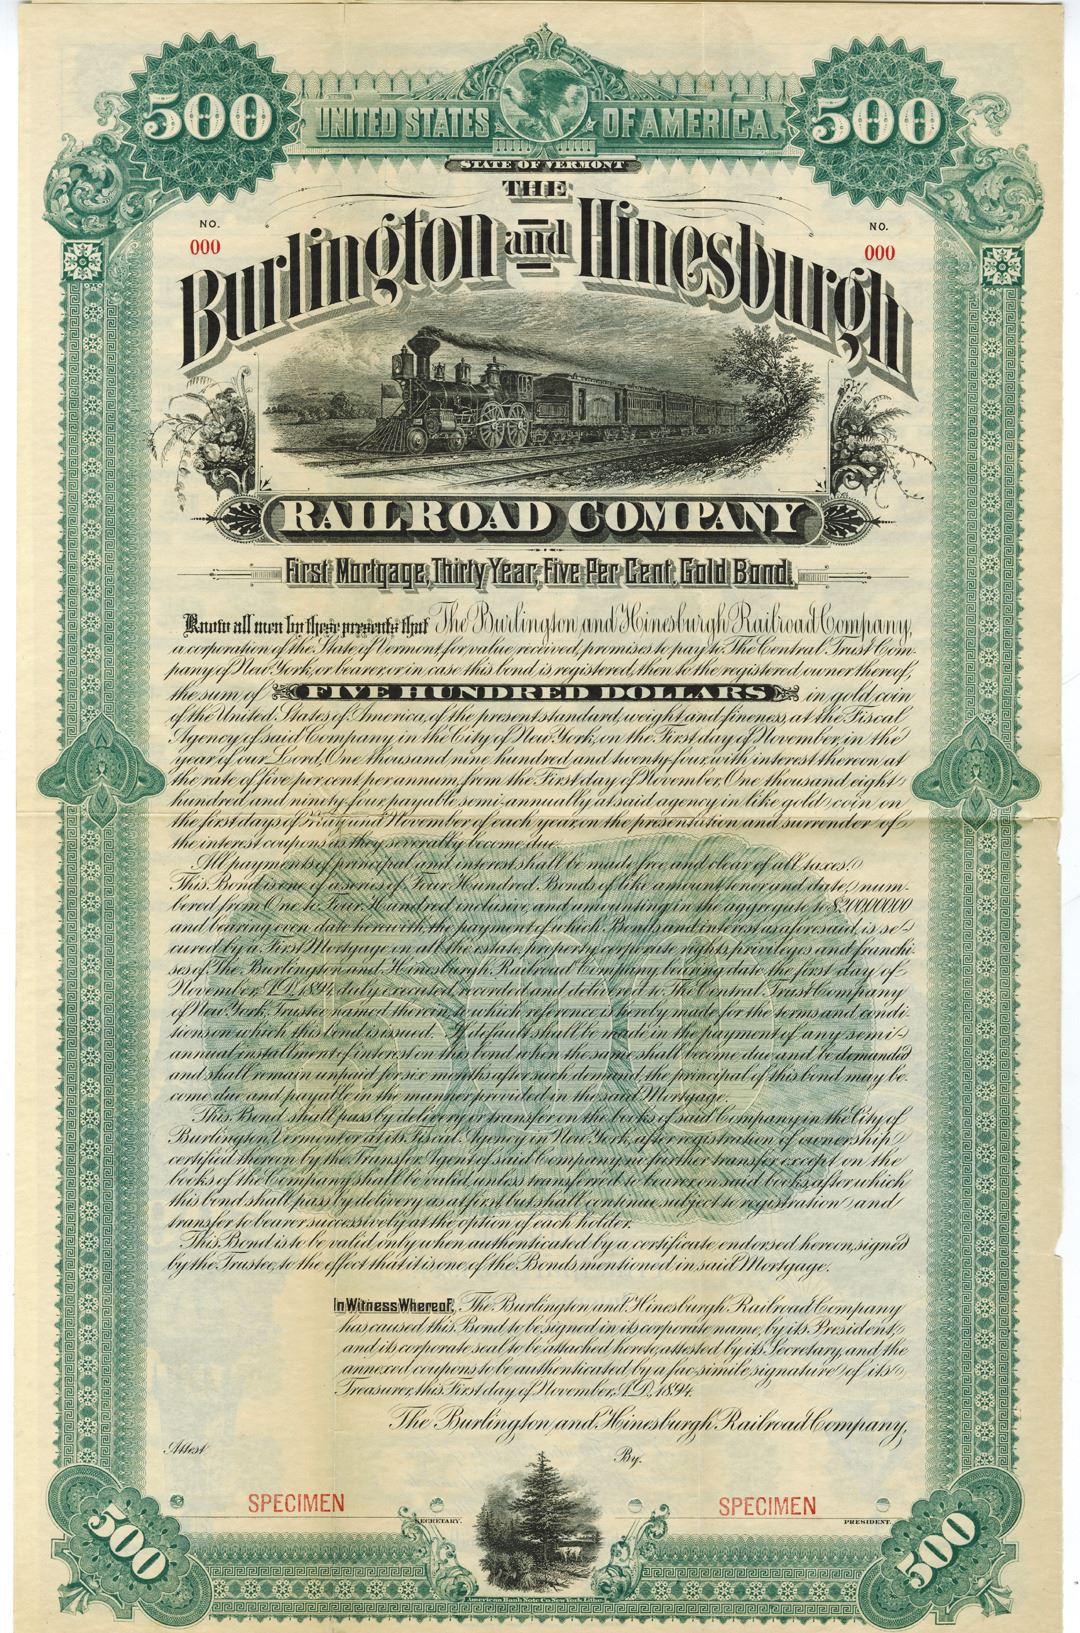 500 UNITED STATES OF AMERICA. 500
STATE OF VERMONT
THE
NO. NO.
000 000
Burlington and Hinesburgh
RAILROAD COMPANY
First Mortgage, Thirty Year, Five Per Cent. Gold Bond.
Know all men by these presents that The Burlington and Hinesburgh Railroad Company,
a corporation of the State of Vermont, for value received, promises to pay to The Central Trust Com-
pany of New York, or bearer, or in case this bond is registered, then to the registered owner thereof,
the sum of FIVE HUNDRED DOLLARS in gold coin
of the United States of America, of the present standard, weight and fineness, at the Fiscal
Agency of said Company in the City of New York, on the First day of November, in the
year of our Lord, One thousand nine hundred and twenty-four, with interest thereon at
the rate of five per cent per annum, from the First day of November, One thousand eight
hundred and ninety-four, payable semi-annually at said agency in like gold coin on
the first days of May and November of each year, on the presentation and surrender of
the interest coupons as they severally become due.
All payments of principal and interest shall be made free and clear of all taxes.
This Bond is one of a series of Four Hundred Bonds of like amount, tenor and date, num-
bered from One to Four Hundred inclusive, and amounting in the aggregate to $200,000.00
and bearing even date herewith, the payment of which Bonds and interest as aforesaid, is se-
cured by a First Mortgage on all the estate, property, corporate rights, privileges and franchi-
ses of The Burlington and Hinesburgh Railroad Company, bearing date the first day of
November, A.D. 1894, duly executed, recorded and delivered to The Central Trust Company
of New York, Trustee named therein, to which reference is hereby made for the terms and condi-
tions on which this bond is issued. If default shall be made in the payment of any semi-
annual installment of interest on this bond when the same shall become due and be demanded
and shall remain unpaid for six months after such demand, the principal of this bond may be-
come due and payable in the manner provided in the said Mortgage.
This Bond shall pass by delivery or transfer on the books of said Company in the City of
Burlington, Vermont or at its Fiscal Agency in New York, after registration of ownership
certified thereon by the Transfer Agent of said Company, no further transfer except on the
books of the Company shall be valid, unless transferred to bearer on said books, after which
this bond shall pass by delivery as at first, but shall continue subject to registration and
transfer to bearer successively at the option of each holder.
This Bond is to be valid only when authenticated by a certificate endorsed hereon, signed
by the Trustee, to the effect that it is one of the Bonds mentioned in said Mortgage.
In Witness Whereof, The Burlington and Hinesburgh Railroad Company
has caused this Bond to be signed in its corporate name, by its President,
and its corporate seal to be attached hereto, attested by its Secretary, and the
annexed coupons to be authenticated by a fac-simile signature of its
Treasurer, this First day of November, A.D. 1894.
The Burlington and Hinesburgh Railroad Company,
Attest By.
SPECIMEN SPECIMEN
SECRETARY. PRESIDENT.
500 500
American Bank Note Co. New York, Litho.